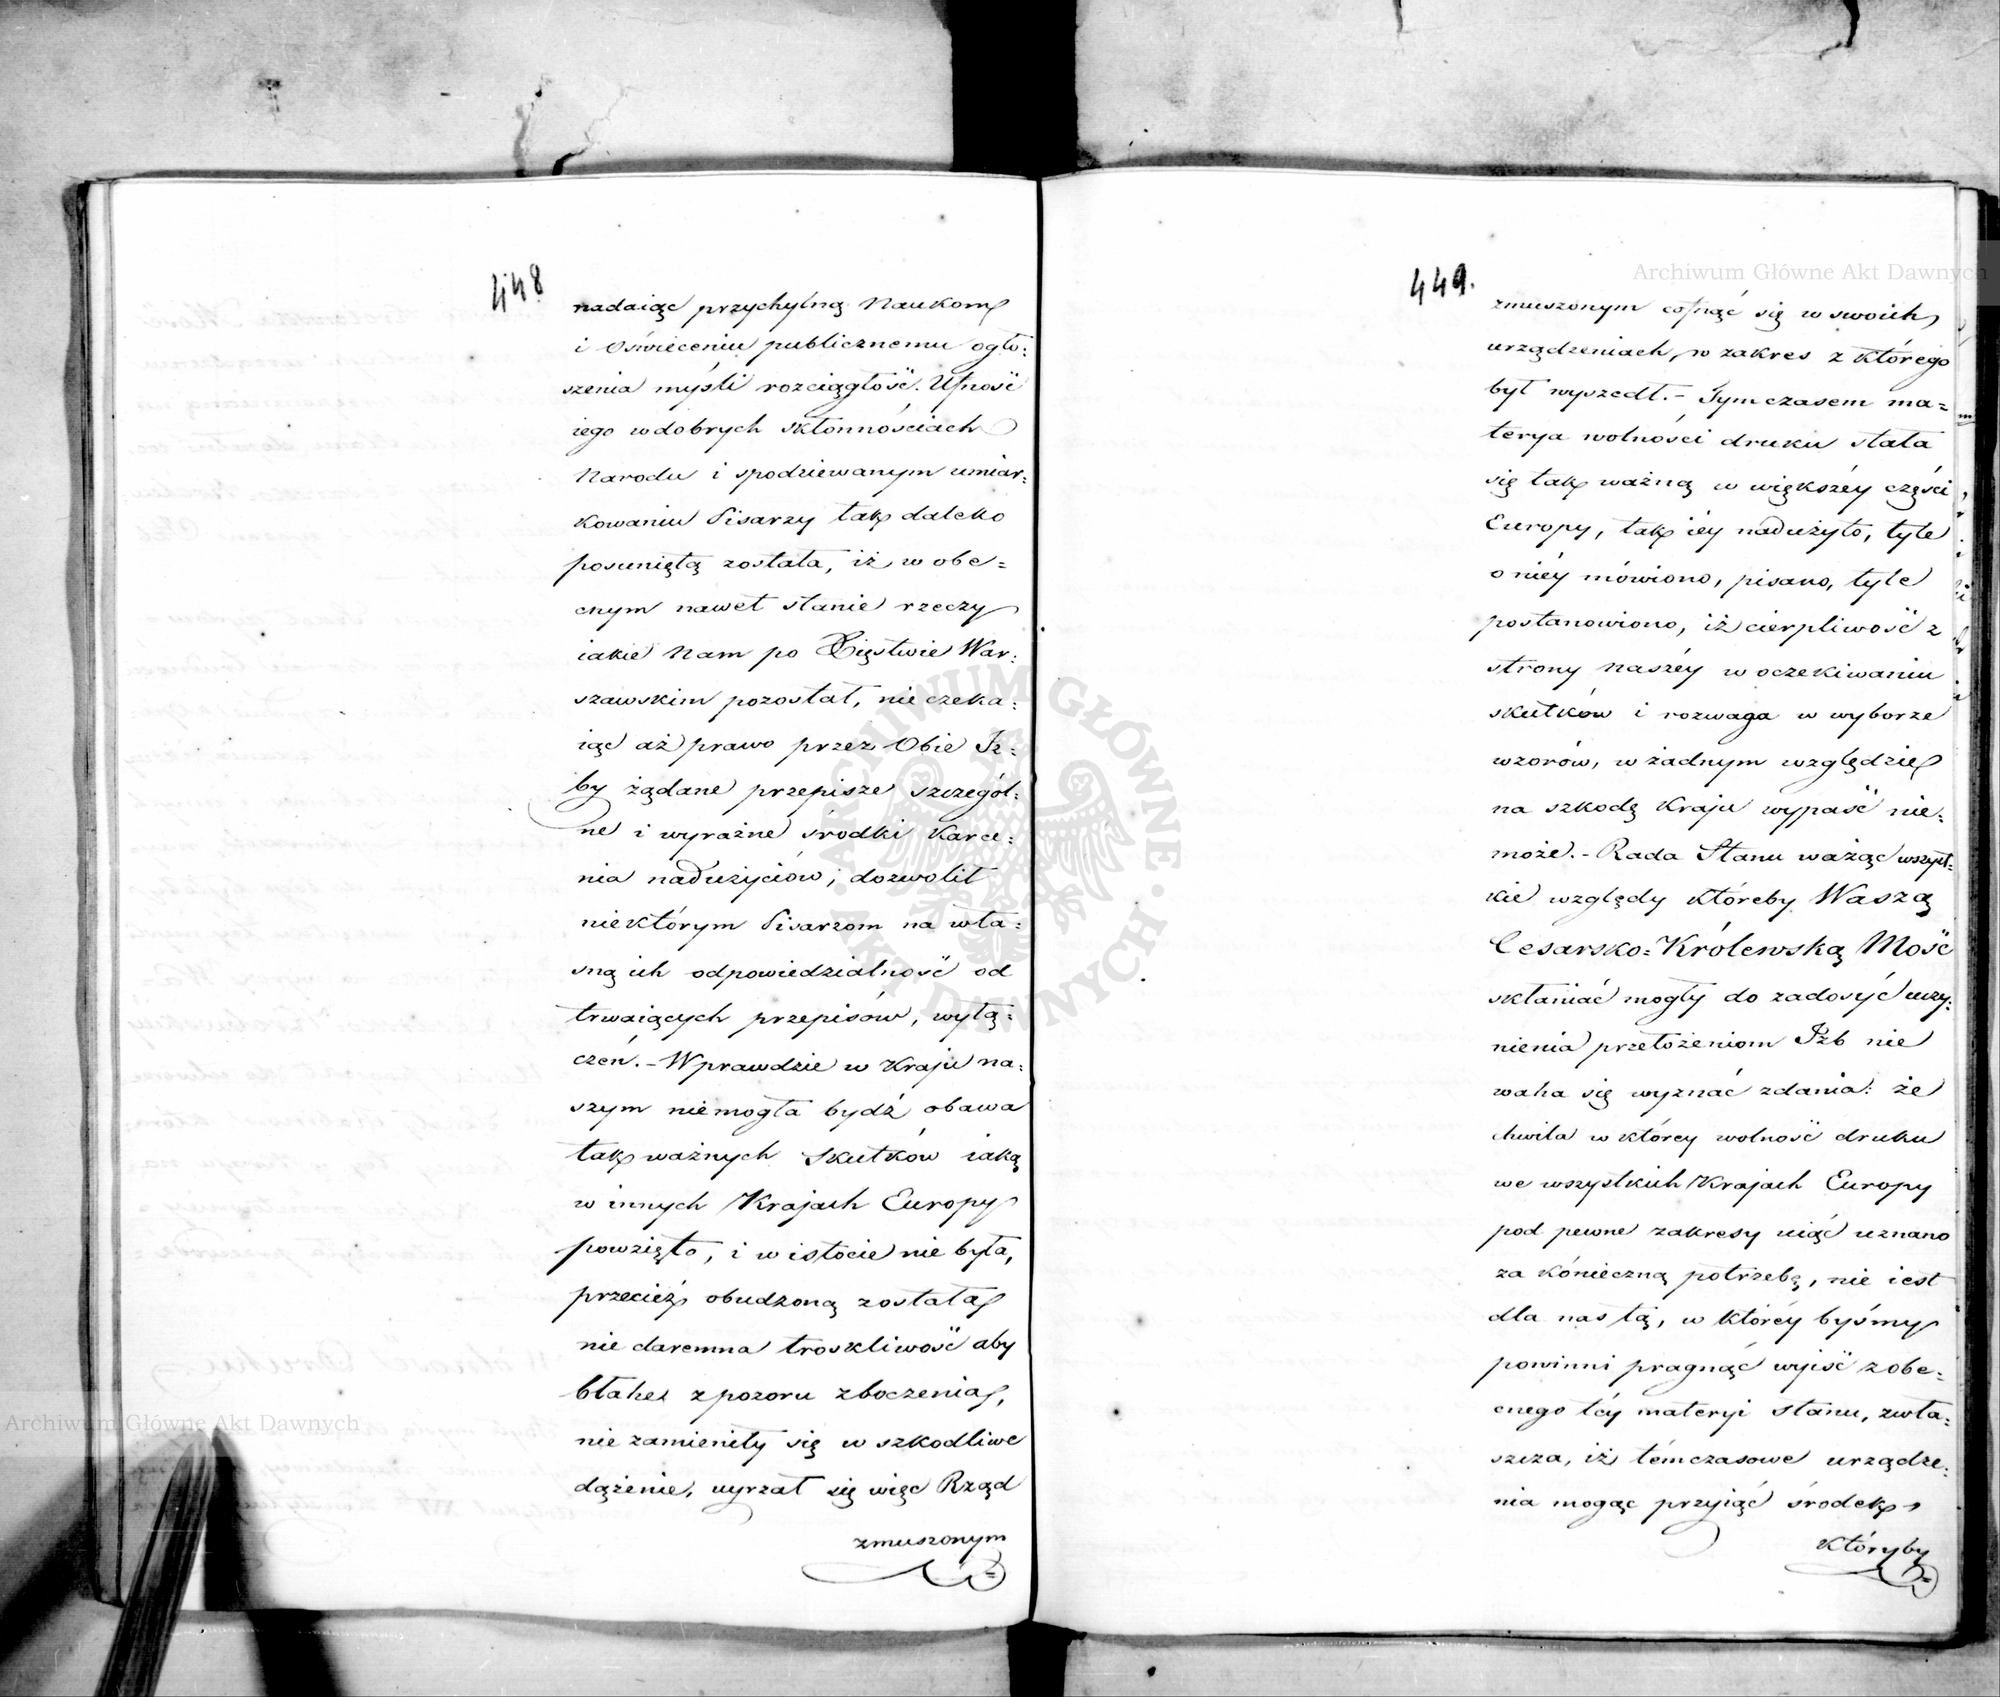 448
nadaiąc przychylną Naukom
i Oświeceniu publicznemu ogło=
szenia myśli rozciągłość. Ufność
iego w dobrych skłonnościach
Narodu i spodziewanym umiar=
kowaniu Pisarzy tak daleko
posuniętą została, iż w obe=
cnym nawet stanie rzeczy
iakie Nam po Xięstwie War=
szawskim pozostał, nie czeka=
iąc aż prawo przez Obie Iz=
by żądane przepisze szczegól=
ne i wyraźne środki karce=
nia nadużyciów, dozwolił
niektórym Pisarzom na wła=
sną ich odpowiedzialność od
trwaiących przepisów, wyłą=
czeń. – Wprawdzie w Kraju na=
szym niemogła bydź obawa
tak ważnych skutków iaką
w innych Krajach Europy
powzięto, i w istocie nie była,
przecież obudzoną została
nie daremna troskliwość aby
błahe z pozoru zboczenia,
nie zamieniły się w szkodliwe
dążenie, uyrzał się więc Rząd
zmuszonym
449.
zmuszonym cofnąć się w swoich
urządzeniach, w zakres z którego
był wyszedł. – Tymczasem ma=
terya wolności druku stała
się tak ważną w większéy części
Europy, tak iéy nadużyto, tyle
o niéy mówiono, pisano, tyle
postanowiono, iż cierpliwość z
strony naszéy w oczekiwaniu
skutków i rozwaga w wyborze
wzorów, w żadnym względzie
na szkodę Kraju wypaść nie=
może. – Rada Stanu ważąc wszyst=
kie względy któreby Waszą
Cesarsko=Królewską Mość
skłaniać mogły do zadosyć uczy=
nienia przełożeniom Izb nie
waha się wyznać zdania: że
chwila w którey wolność druku
we wszystkich Krajach Europy
pod pewne zakresy uiąć uznano
za konieczną potrzebę, nie iest
dla nas tą, w któréy byśmy
powinni pragnąć wyiść z obe=
cnego téy materyi stanu, zwła=
szcza, iż témczasowe urządze=
nia mogąc przyiąć środek,
któryby
Archiwum Główne Akt Dawnych
Archiwum Główne Akt Dawnych
ARCHIWUM GŁÓWNE AKT DAWNYCH